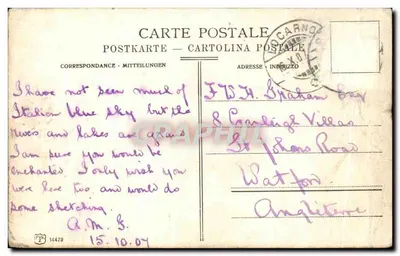 CARTE POSTALE
POSTKARTE — CARTOLINA POSTALE
CORRESPONDANCE - MITTEILUNGEN
I have not seen much of
Italian blue sky but the
rivers and lakes are
I am sure you would be
enchanted. I only wish you
were here too and would do
some sketching.
A.M.G.
15.10.07
14479
ADRESSE - INDIRIZZO
LOCARNO
Graham Esq
8 Villas
St Johns Road
Watford
Angleterre